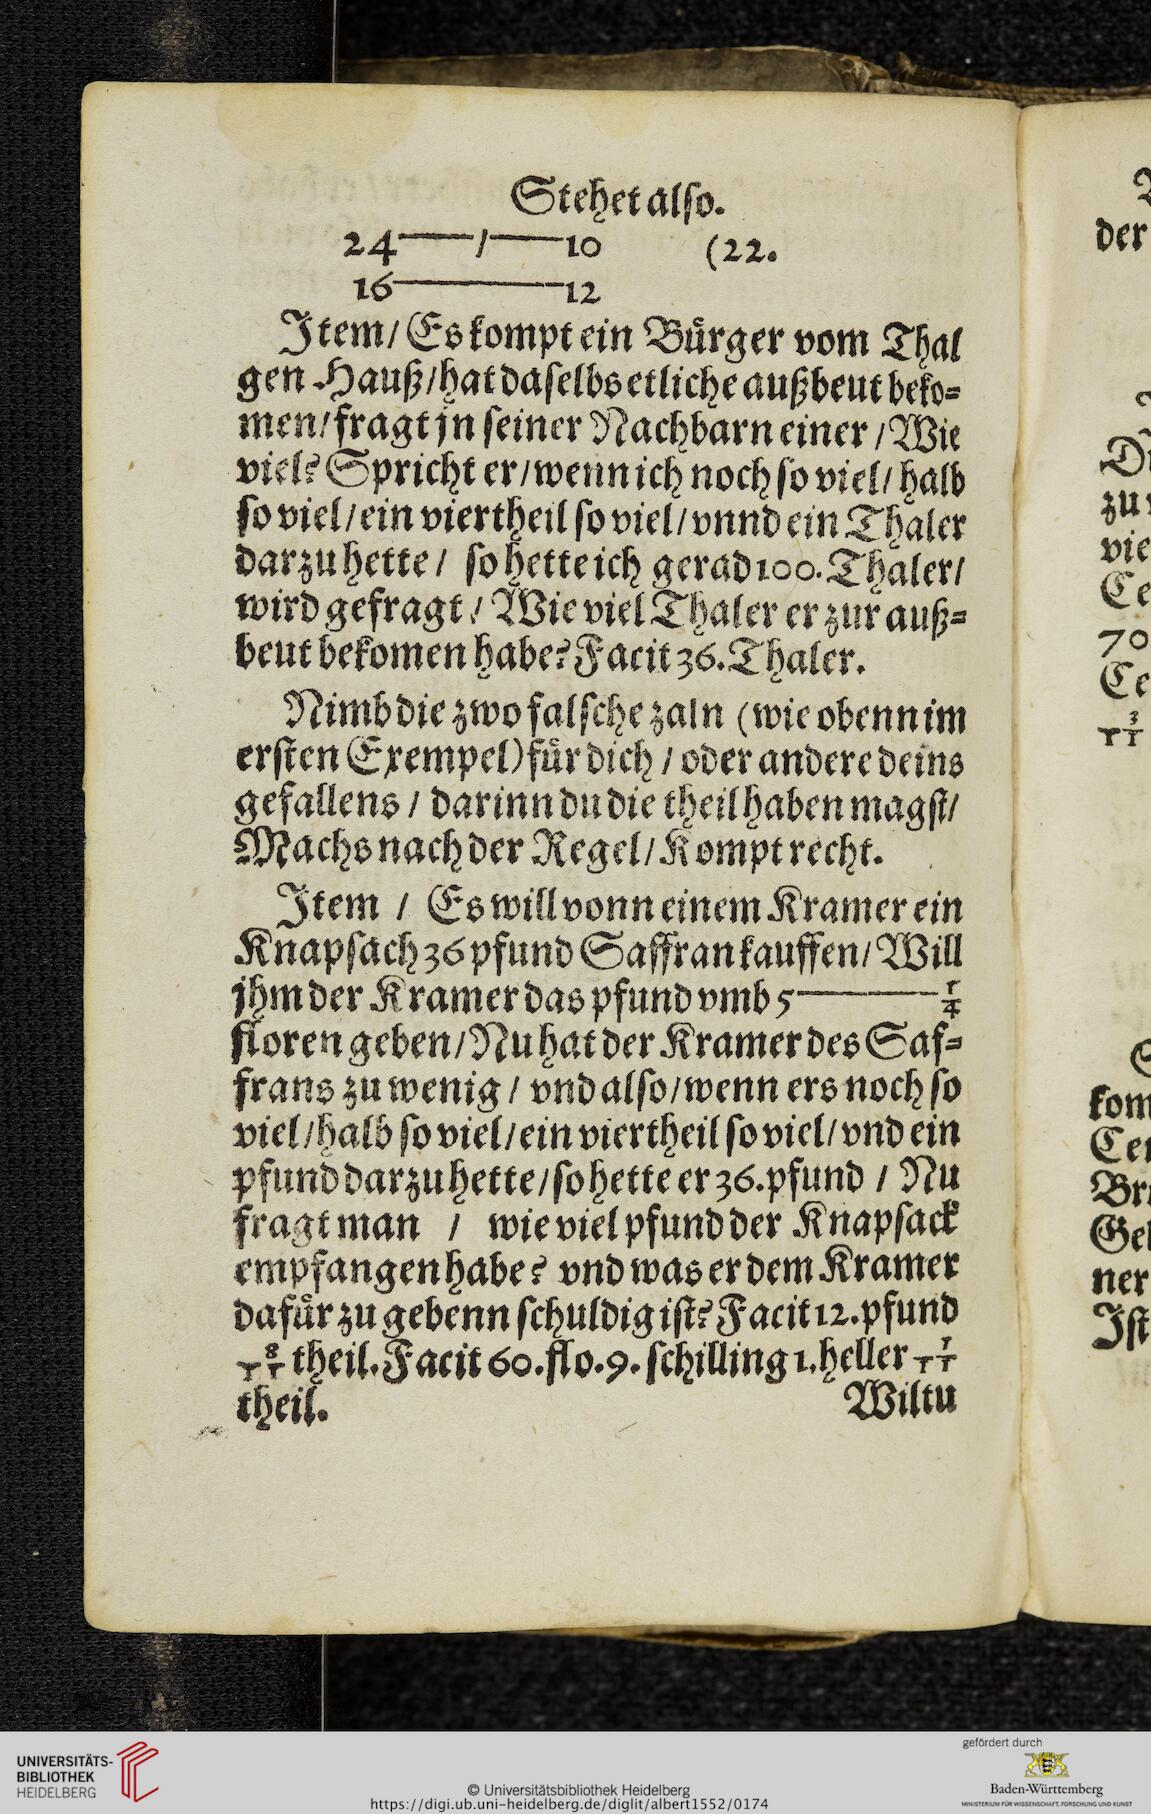 Stehet also.
24 — / — 10 (22.
16 — 12
Item / Es kompt ein Bürger vom Thal
gen Hauß / hat daselbs etliche außbeut beko=
men / fragt jn seiner Nachbarn einer / Wie
viel? Spricht er / wenn ich noch so viel / halb
so viel / ein viertheil so viel / vnnd ein Thaler
darzu hette / so hette ich gerad 100. Thaler /
wird gefragt / Wie viel Thaler er zur auß=
beut bekomen habe? Facit 36. Thaler.
Nimb die zwo falsche zaln (wie obenn im
ersten Exempel) für dich / oder andere deins
gefallens / darinn du die theil haben magst /
Machs nach der Regel / Kompt recht.
Item / Es will vonn einem Kramer ein
Knapsach 36 pfund Saffran kauffen / Will
jhm der Kramer das pfund vmb 5 — 1/4
floren geben / Nu hat der Kramer des Saf=
frans zu wenig / vnd also / wenn ers noch so
viel / halb so viel / ein viertheil so viel / vnd ein
pfund darzu hette / so hette er 36. pfund / Nu
fragt man / wie viel pfund der Knapsack
empfangen habe? vnd was er dem Kramer
dafür zu gebenn schuldig ist? Facit 12. pfund
8/11 theil. Facit 60. flo. 9. schilling 1. heller 1/11
theil. Wiltu
der
zu
vie
Ce
70
Ce
3/11
kom
Cen
Ge
ner
Ist
UNIVERSITÄTS-
BIBLIOTHEK
HEIDELBERG
© Universitätsbibliothek Heidelberg
https://digi.ub.uni-heidelberg.de/diglit/albert1552/0174
gefördert durch
Baden-Württemberg
MINISTERIUM FÜR WISSENSCHAFT, FORSCHUNG UND KUNST